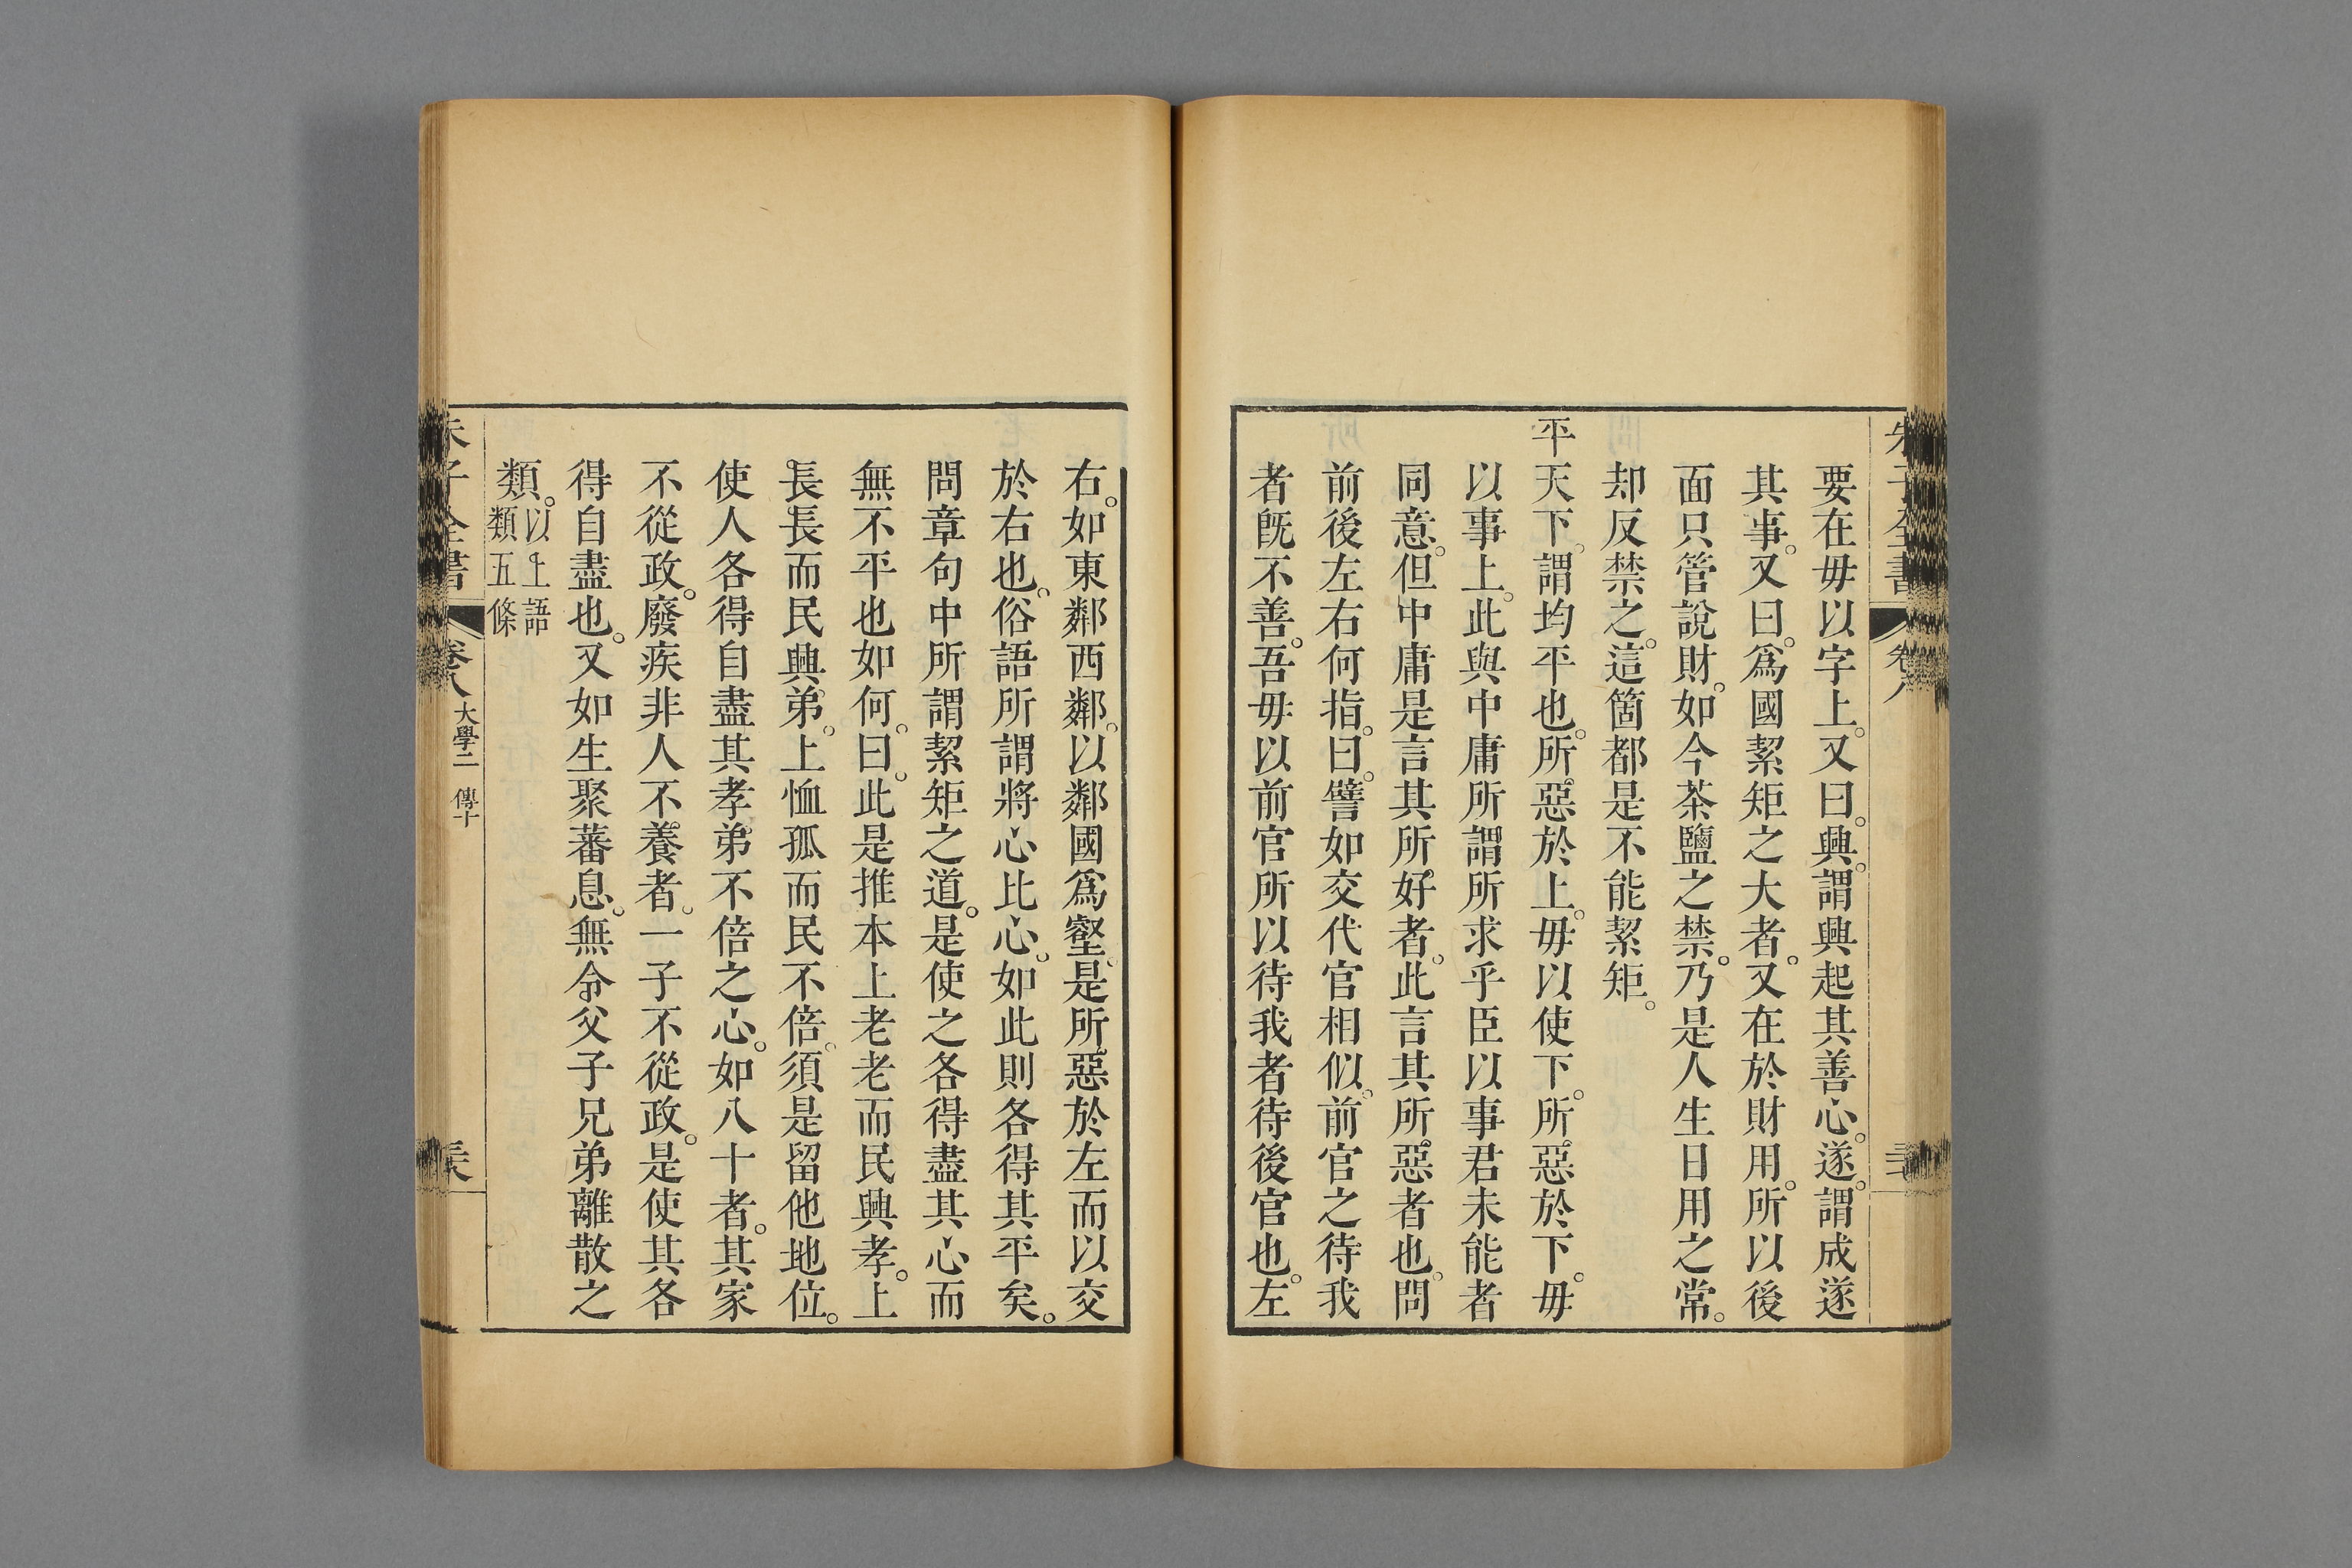 要在毋以字上。又曰。興。謂興起其善心。遂。謂成遂
其事。又曰。爲國絜矩之大者。又在於財用。所以後
面只管說財。如今茶鹽之禁。乃是人生日用之常。
却反禁之。這箇都是不能絜矩。
平天下。謂均平也。所惡於上。毋以使下。所惡於下。毋
以事上。此與中庸所謂所求乎臣以事君未能者
同意。但中庸是言其所好者。此言其所惡者也。問
前後左右何指。曰。譬如交代官相似。前官之待我
者旣不善。吾毋以前官所以待我者待後官也。左
右。如東鄰西鄰。以鄰國爲壑。是所惡於左而以交
於右也。俗語所謂將心比心。如此則各得其平矣。
問章句中所謂絜矩之道。是使之各得盡其心而
無不平也如何。曰。此是推本上老老而民興孝。上
長長而民興弟。上恤孤而民不倍。須是留他地位。
使人各得自盡其孝弟不倍之心。如八十者。其家
不從政。廢疾非人不養者。一子不從政。是使其各
得自盡也。又如生聚蕃息。無令父子兄弟離散之
類。以上語
類五條
朱子全書
卷八
大學二 傳十